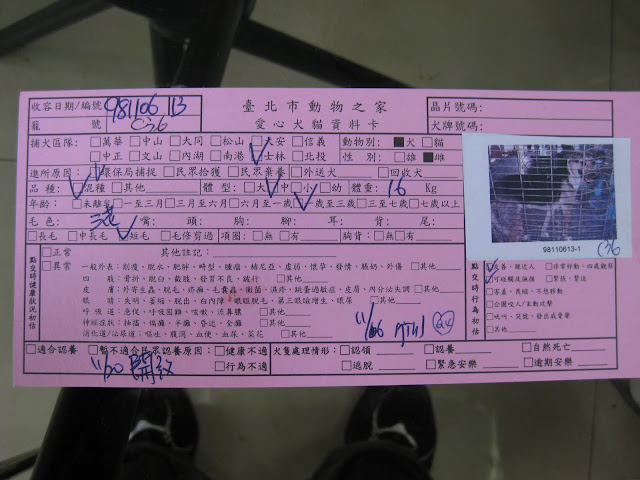 收容日期/編號 981106 113
臺北市動物之家
晶片號碼:
籠號 C36
愛心犬貓資料卡
犬牌號碼:
捕犬區隊: □萬華 □中山 □大同 □松山 □大安 □信義
動物別: ■犬 □貓
□中正 □文山 □內湖 □南港 ☑士林 □北投
性別: □雄 ■雌
進所原因: ☑環保局捕捉 □民眾拾獲 □民眾棄養 □外送犬 □回收犬
品種: ☑混種 □其他 體型: □大 ☑中 □小 □幼 體重: 16 Kg
年齡: □未離乳 □一至三月 □三月至六月 □六月至一歲 ☑一歲至三歲 □三至七歲 □七歲以上
毛色: 嘴: 頭: 胸: 腳: 耳: 背: 尾:
□長毛 □中長毛 ☑短毛 □毛修剪過 項圈: □無 □有 胸背: □無 □有
98110613-1
C36
點交時健康狀況初估
□正常 其他註記:
□異常
一般外表: 削瘦、脫水、肥胖、畸型、腫瘤、赫尼亞、虛弱、懷孕、發情、脹奶、外傷 □其他
四肢: 骨折、脫臼、截肢、發育不良、破行 □其他
皮膚: 外寄生蟲、脫毛、疥癬、毛囊蟲、黴菌、濕疹、跳蚤過敏症、皮屑、內分泌失調 □其他
眼睛: 失明、萎縮、脫出、白內障、眼瞼脫毛、第三眼瞼增生、眼屎 □其他
呼吸道: 急促、呼吸困難、咳嗽、流鼻膿 □其他
神經症狀: 抽搐、偏癱、半癱、昏迷、全癱 □其他
消化道/泌尿道: 嘔吐、腹瀉、血便、血尿、菜花 □其他
11/06
點交時行為初估
☑友善、親近人 □非常好動、四處觀察
☑可碰觸及撫摸 □緊張、緊迫
□害羞、畏縮、不想移動
□企圖咬人/主動攻擊
□吠叫、哭號、發出威脅聲
□其他
□適合認養 □暫不適合民眾認養原因: □健康不適 犬隻處理情形: □認領 □認養 □自然死亡
□行為不適 □逃脫 □緊急安樂 □逾期安樂
11/20 開紋